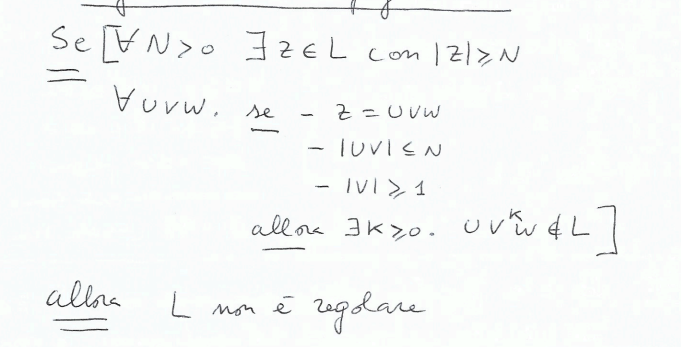 Se [∀N>0 ∃z∈L con |z|≥N
∀uvw. se - z = uvw
- |uv| ≤ N
- |v| ≥ 1
allora ∃k≥0. uvᵏw ∉ L]
allora L non è regolare